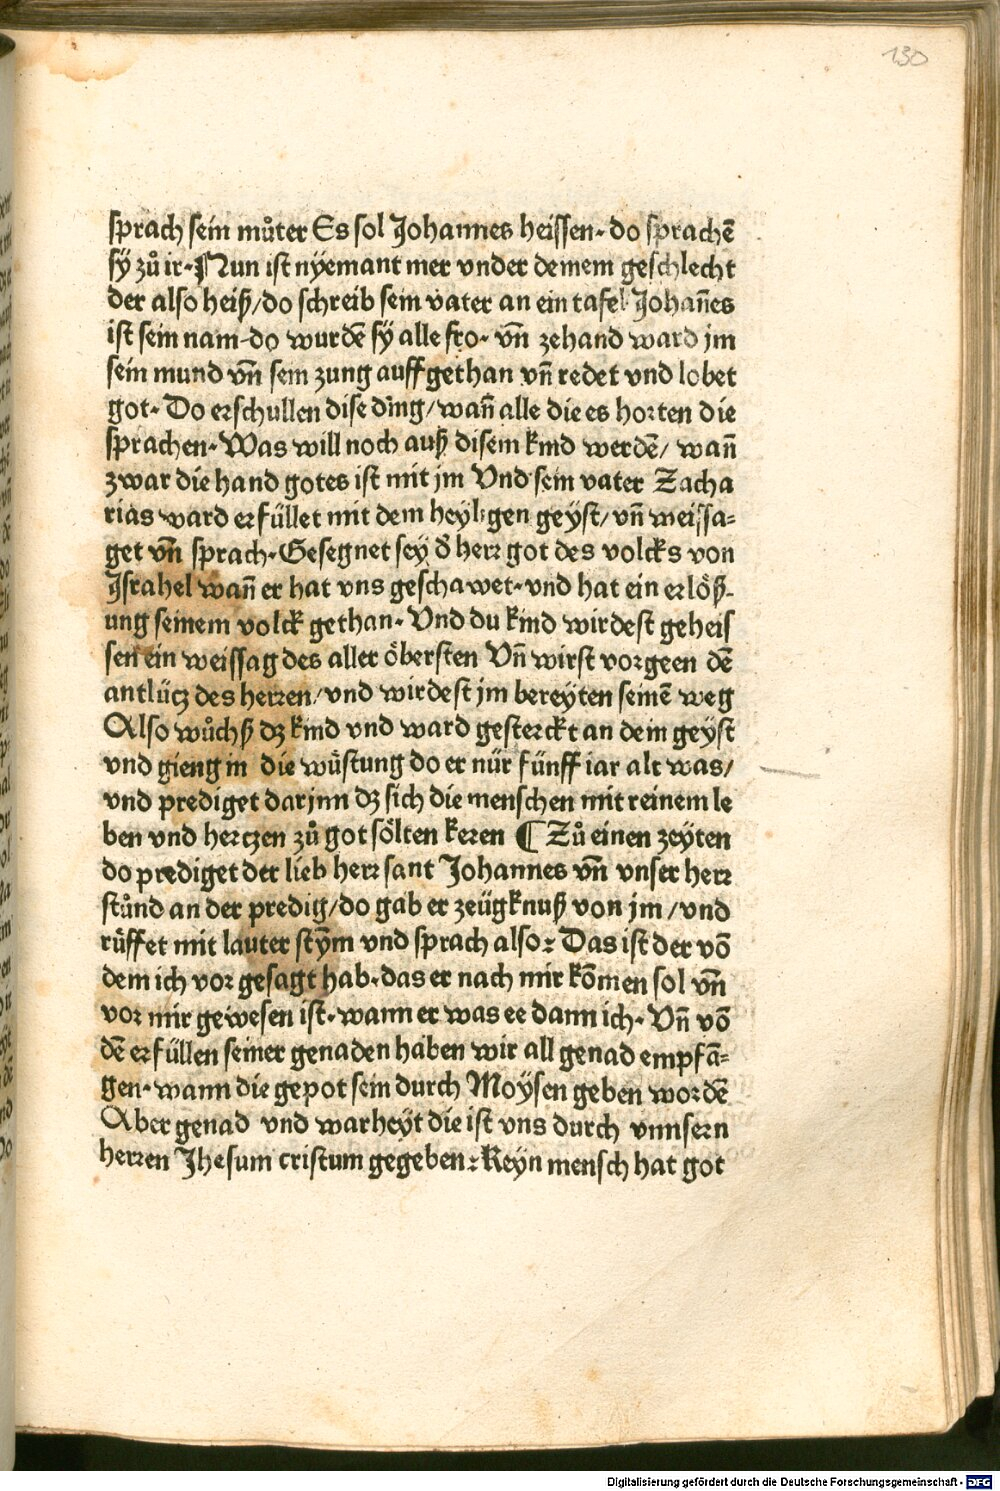 130
sprach sein můter Es sol Johannes heissen· do sprachē
sÿ zů ir· Nun ist nÿemant mer vnder deinem geschlecht
der also heiß/ do schreib sein vater an ein tafel· Johan̄es
ist sein nam· do wurdē sÿ alle fro· vn̄ zehand ward jm
sein mund vn̄ sein zung auff gethan vn̄ redet vnd lobet
got· Do erschullen dise ding/ wan̄ alle die es horten die
sprachen· Was will noch auß disem kind werdē/ wan̄
zwar die hand gotes ist mit jm Vnd sein vater Zacha
rias ward erfüllet mit dem heÿligen geÿst/ vn̄ weissa⸗
get vn̄ sprach· Gesegnet seÿ d̄ herr got des volcks von
Jsrahel wan̄ er hat vns geschawet· vnd hat ein erlöß⸗
ung seinem volck gethan· Vnd du kind wirdest geheis
sen ein weissag des aller öbersten Vn̄ wirst vorgeen dē
antlücz des herren/ vnd wirdest jm bereÿten seinē weg
Also wůchß dz kind vnd ward gesterckt an dem geÿst
vnd gieng in die wüstung do er nür fünff iar alt was/
vnd prediget darjnn dz sich die menschen mit reinem le
ben vnd hertzen zů got sölten keren ¶ Zů einen zeÿten
do prediget der lieb herr sant Johannes vn̄ vnser herr
stůnd an der predig/ do gab er zeügknuß von jm / vnd
rüffet mit lauter stȳm vnd sprach also: Das ist der vō
dem ich vor gesagt hab· das er nach mir kōmen sol vn̄
vor mir gewesen ist· wann er was ee dann ich· Vn̄ vō
dē erfüllen seiner genaden haben wir all genad empfā⸗
gen· wann die gepot sein durch Moÿsen geben wordē
Aber genad vnd warheÿt die ist vns durch vnnsern
herren Jhesum cristum gegeben: Keÿn mensch hat got
Digitalisierung gefördert durch die Deutsche Forschungsgemeinschaft - DFG